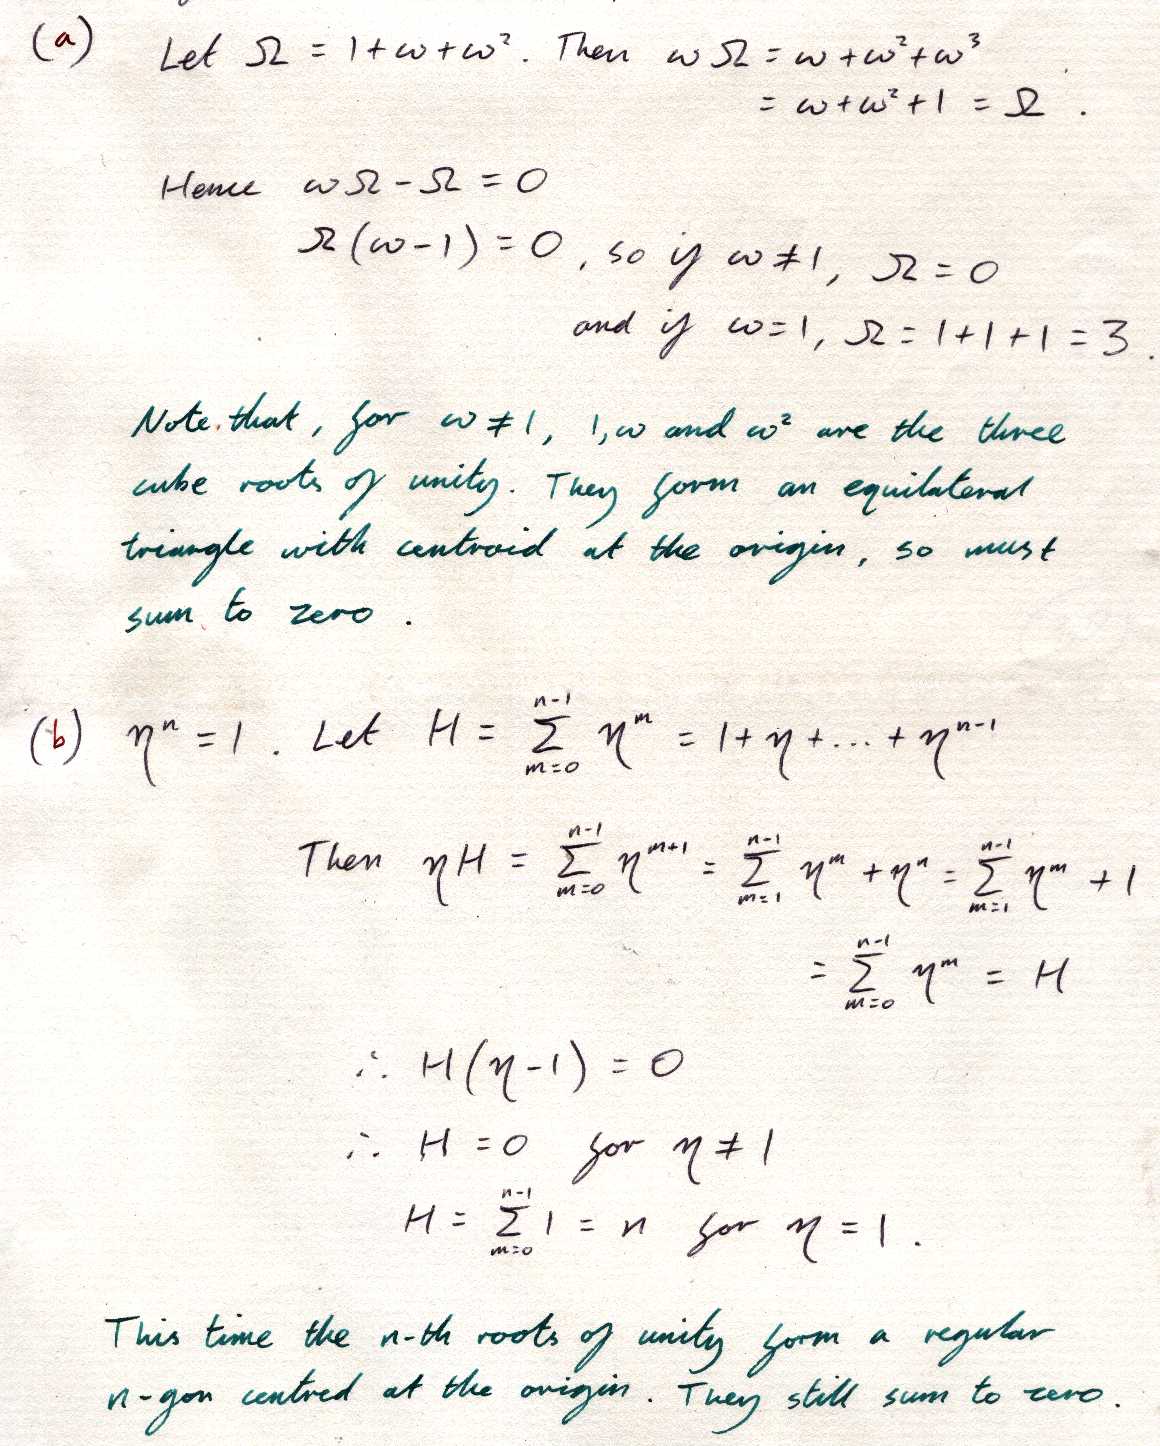 (a) Let Ω = 1 + ω + ω². Then ωΩ = ω + ω² + ω³
= ω + ω² + 1 = Ω .
Hence ωΩ - Ω = 0
Ω(ω-1) = 0, so if ω ≠ 1, Ω = 0
and if ω = 1, Ω = 1+1+1 = 3.
Note that, for ω ≠ 1, 1, ω and ω² are the three
cube roots of unity. They form an equilateral
triangle with centroid at the origin, so must
sum to zero .
(b) ηⁿ = 1 . Let H = ∑_{m=0}^{n-1} η^m = 1 + η + ... + η^{n-1}
Then ηH = ∑_{m=0}^{n-1} η^{m+1} = ∑_{m=1}^{n-1} η^m + η^n = ∑_{m=1}^{n-1} η^m + 1
= ∑_{m=0}^{n-1} η^m = H
∴ H(η-1) = 0
∴ H = 0 for η ≠ 1
H = ∑_{m=0}^{n-1} 1 = n for η = 1 .
This time the n-th roots of unity form a regular
n-gon centred at the origin. They still sum to zero.